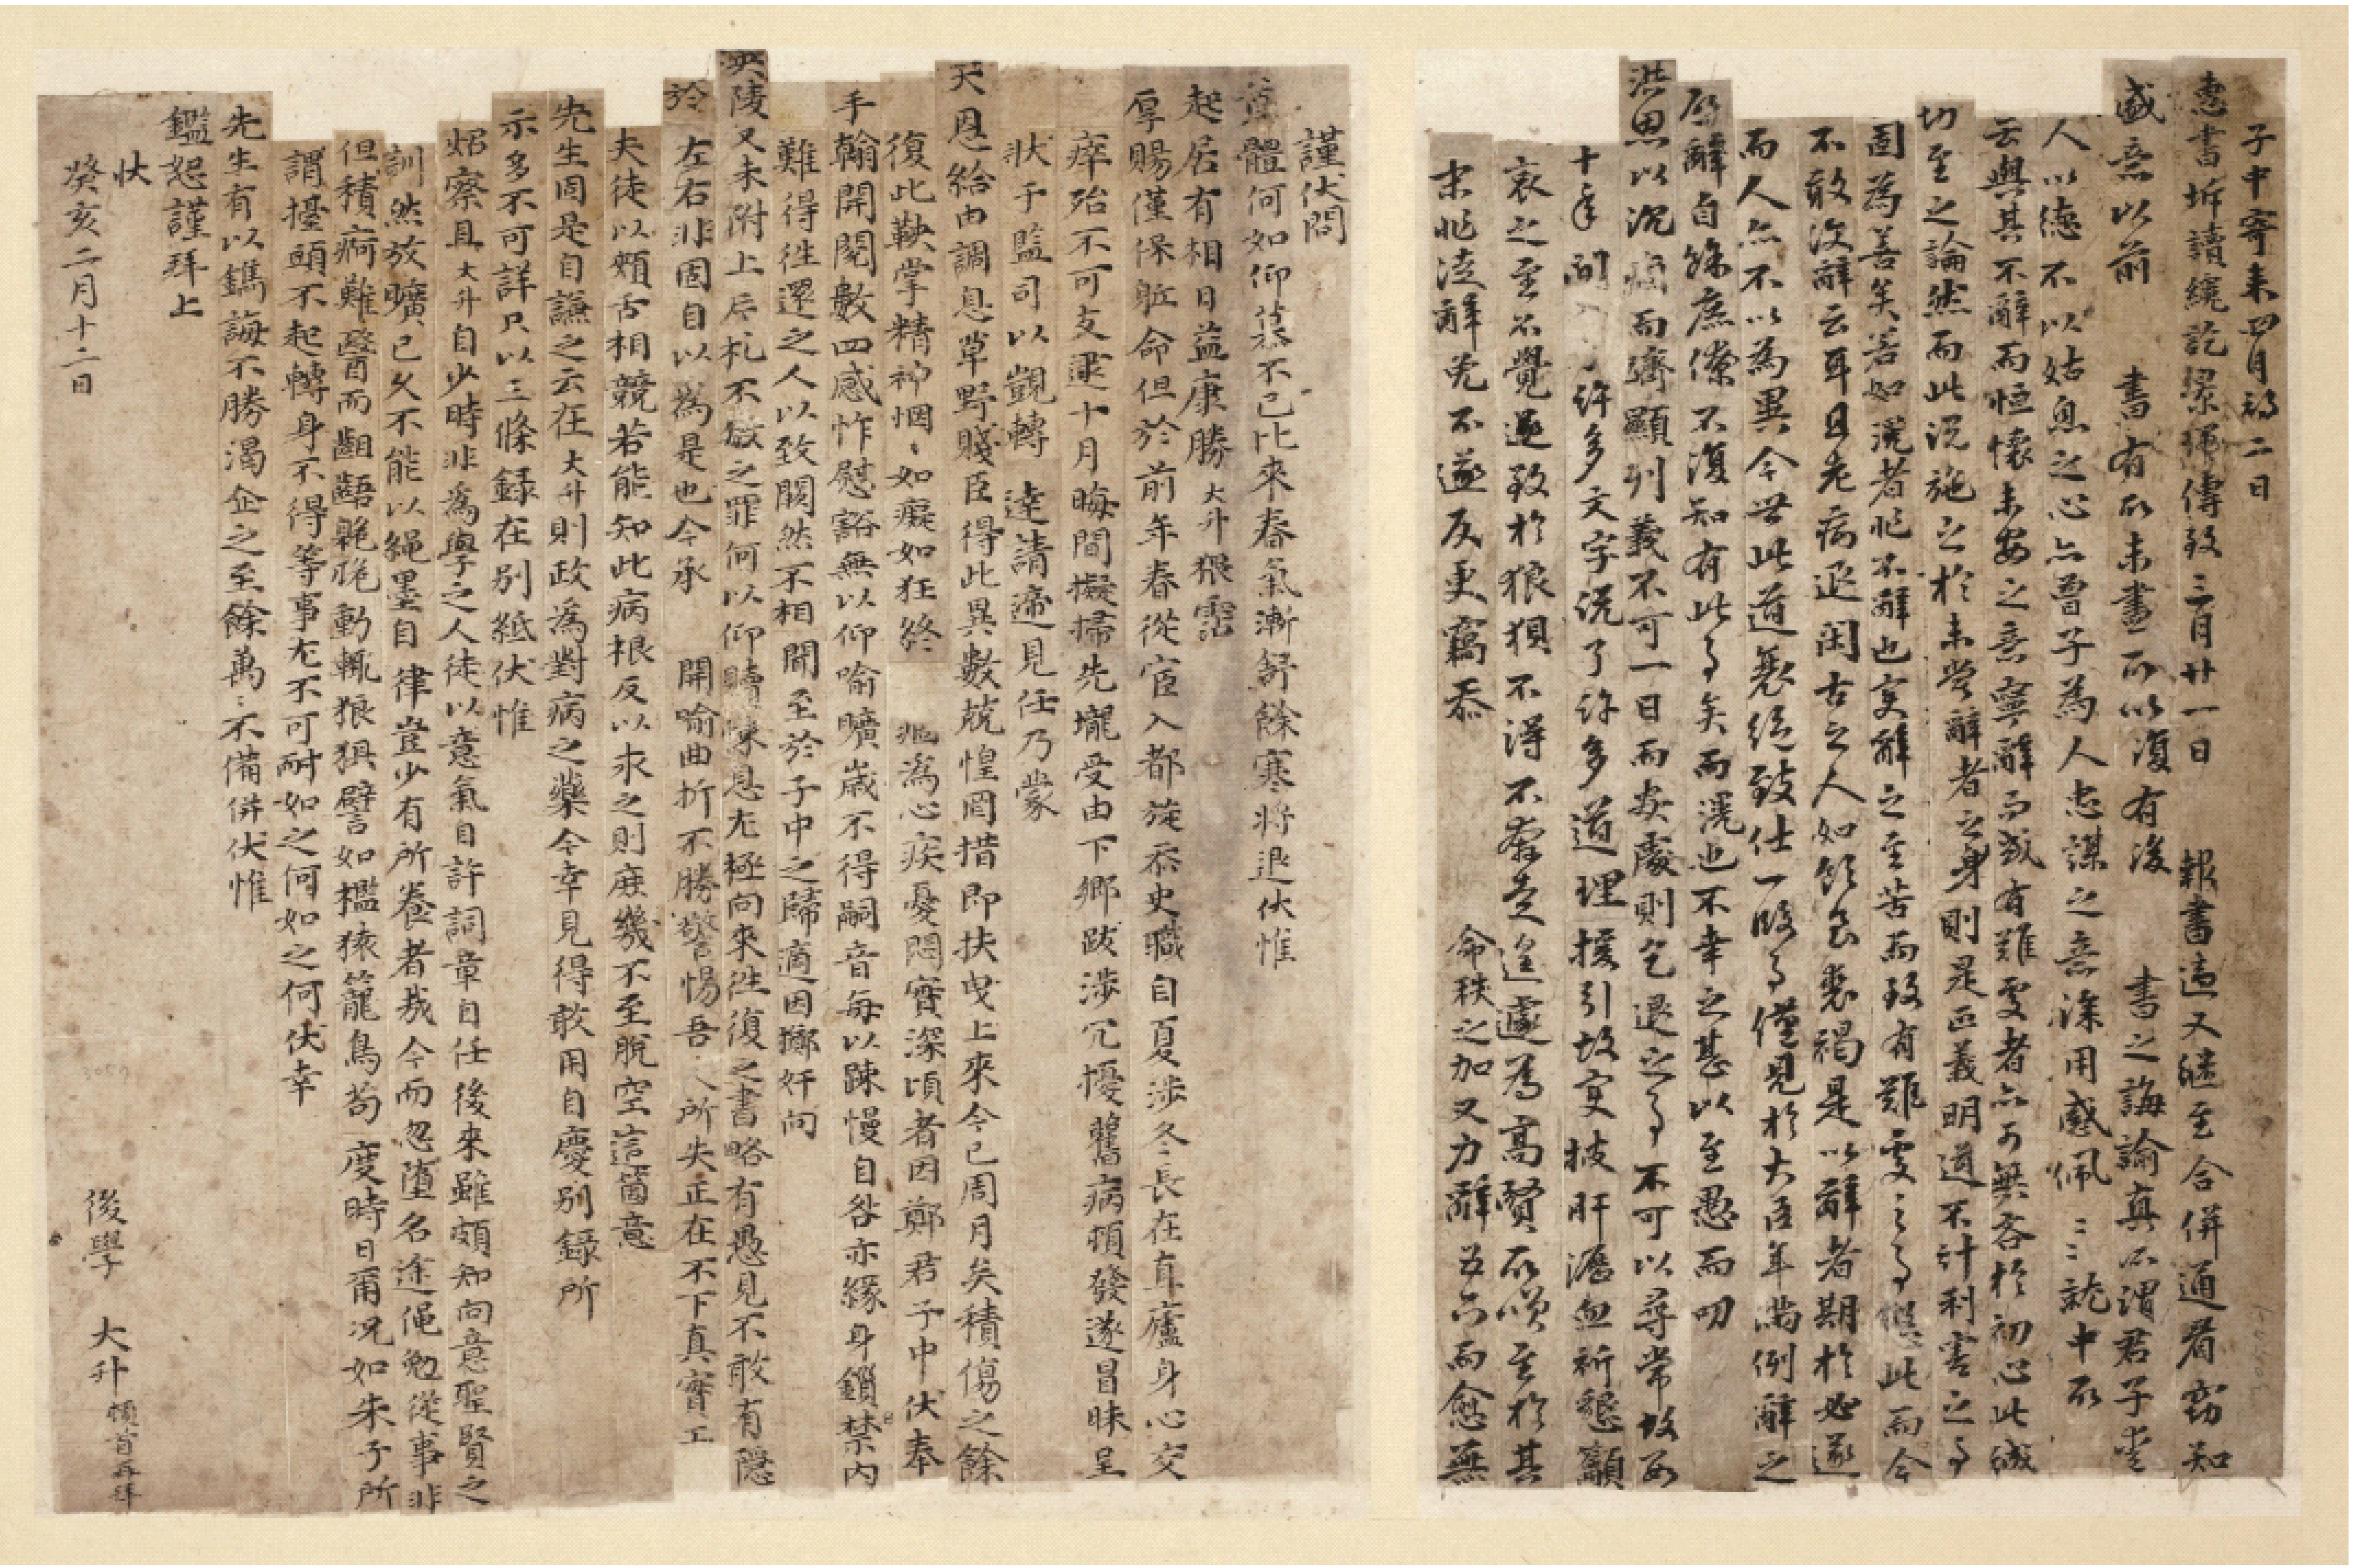 子中寄來四月初二日
惠書坼讀纔訖梁繩傳致三月廿一日 報書適又繼至合併通看前知
盛意以前 書有所未盡而以復有後 書之誨諭眞所謂君子愛
人以德不以姑息之心亦曾子爲人忠謀之意深用感佩〻〻就中所
云與其不辭而恒懷未安之意寧辭而或有難處者亦可無咎於初心此誠
切至之論然而此說施之於未嘗辭者之身則是正義明道不計利害之事
固爲善矣若如滉者非不辭也實辭之至苦而致有難處之事似此而今
不敢復辭云耳且老病退閑古之人如飢食裘褐是以辭者期於必遂
而人亦不以爲異今世此道衰絕致仕一段事僅見於大臣年滿例辭之
辭自餘庶僚不復知有此事矣而滉也不幸之甚以至愚而叨
洪恩以沉痼而躋顯列義不可一日而處則乞退之事不可以尋常故
十年間 許多文字說了許多道理援引故實披肝瀝血祈懇籲
哀之至不覺遂致於狼狽不得不奔走遑遽爲高賢所嘆至於其
末非徒辭免不遂反更竊忝 命秩之加又力辭五六而愈無
謹伏問
體何如仰慕不已比來春氣漸舒餘寒將退伏惟
起居有相日益康勝大升猥霑
厚賜僅保軀命但於前年春從宦入都旋忝史職自夏涉冬長在直廬身心交
瘁殆不可支逮十月晦間擬掃先壠受由下鄉跋涉冗擾舊病頓發遂冒昧呈
狀于監司以覬轉 達請遞見任乃蒙
天恩給由調息草野賤臣得此異數兢惶罔措卽扶曳上來今已周月矣積傷之餘
復此鞅掌精神惘〻如癡如狂終 爲心疾憂悶實深頃者因鄭君子中伏奉
手翰開閱數四感怍慰豁無以仰喻曠歲不得嗣音每以踈慢自咎亦緣身鎖禁內
難得往還之人以致闕然不相聞至於子中之歸適因擲奸向
陵又未附上片札不敏之罪何以仰贖悚息尤極向來往復之書略有愚見不敢有隱
於 左右非固自以爲是也今承 開喻曲折不勝警惕吾人所失正在不下眞實工
夫徒以頰舌相競若能知此病根反以求之則庶幾不至脫空這箇意
先生固是自謙之云在大升則政爲對病之藥今幸見得敢用自慶別錄所
示多不可詳只以三條錄在別紙伏惟
炤察且大升自少時非爲學之人徒以意氣自許詞章自任後來雖頗知向意聖賢之
訓然放曠已久不能以繩墨自 律豈少有所養者哉今而忽墮名途俛勉從事非
但積病難醫而齟齬臲卼動輒狼狽譬如檻猿籠鳥苟度時日爾況如朱子所
謂擡頭不起轉身不得等事尤不可耐如之何如之何伏幸
先生有以鐫誨不勝渴企之至餘萬〻不備倂伏惟
鑑恕謹拜上
伏
癸亥二月十二日
後學 大升 頓首再拜